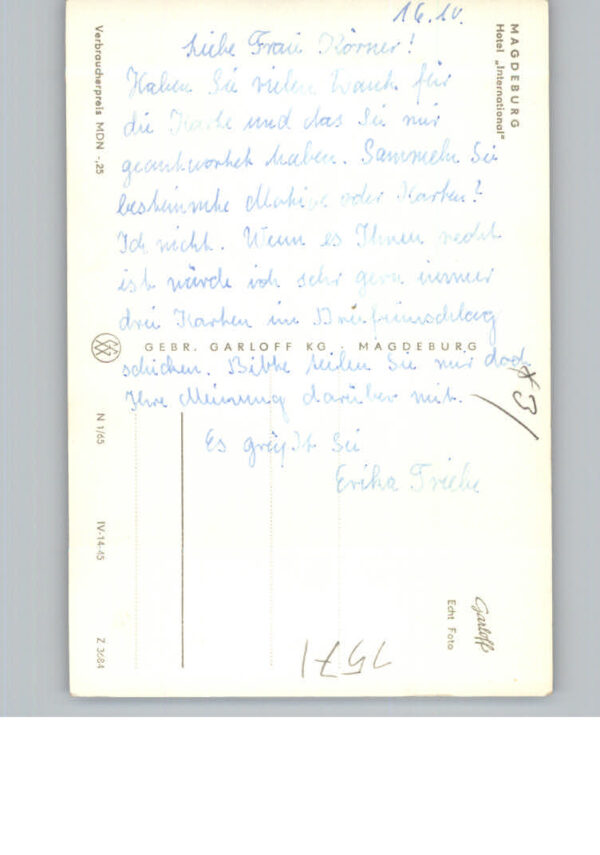 16. IV.
Liebe Frau Körner!
Haben Sie vielen Dank für
die Karte und das Sie mir
geantwortet haben. Sammeln Sie
bestimmte Motive oder Karten?
Ich nicht. Wenn es Ihnen recht
ist würde ich sehr gern immer
drei Karten im Briefumschlag
schicken. Bitte teilen Sie mir doch
Ihre Meinung darüber mit.
Es grüßt Sie
Erika
MAGDEBURG
Hotel „International"
Verbraucherpreis MDN -,25
GEBR. GARLOFF KG · MAGDEBURG
N 1/65
IV-14-45
Z 3684
Garloff
Echt Foto
1571